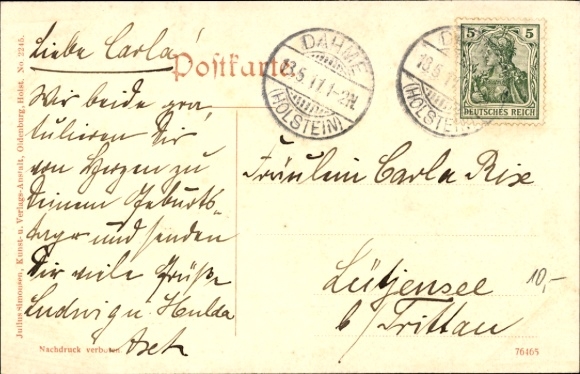 Liebe Carla!
Postkarte
Wir beide gra
tulieren Dir
von Herzen zu
Deinem Geburts
tage und senden
Dir viele Grüße
Ludwig u. Hulda
Nachdruck verboten.
Julius Simonsen, Kunst- u. Verlags-Anstalt, Oldenburg, Holst. No. 2245.
DAHME
18.5.11.1-2N.
(HOLSTEIN)
DAHME
18.5.11
(HOLSTEIN)
5 5
DEUTSCHES REICH
Fräulein Carla Rix
Lütjensee
b/Trittau
10,-
76465